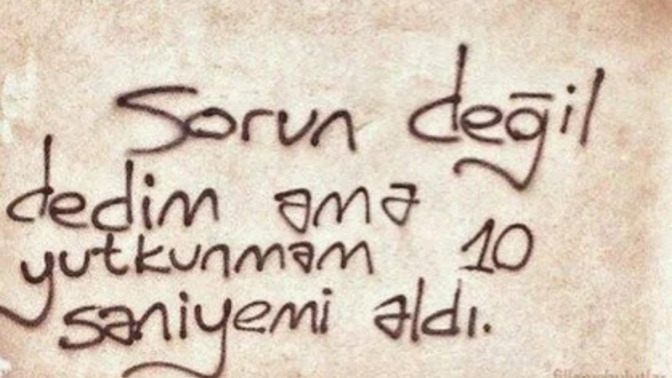 Sorun değil
dedim ama
yutkunmam 10
saniyemi aldı.